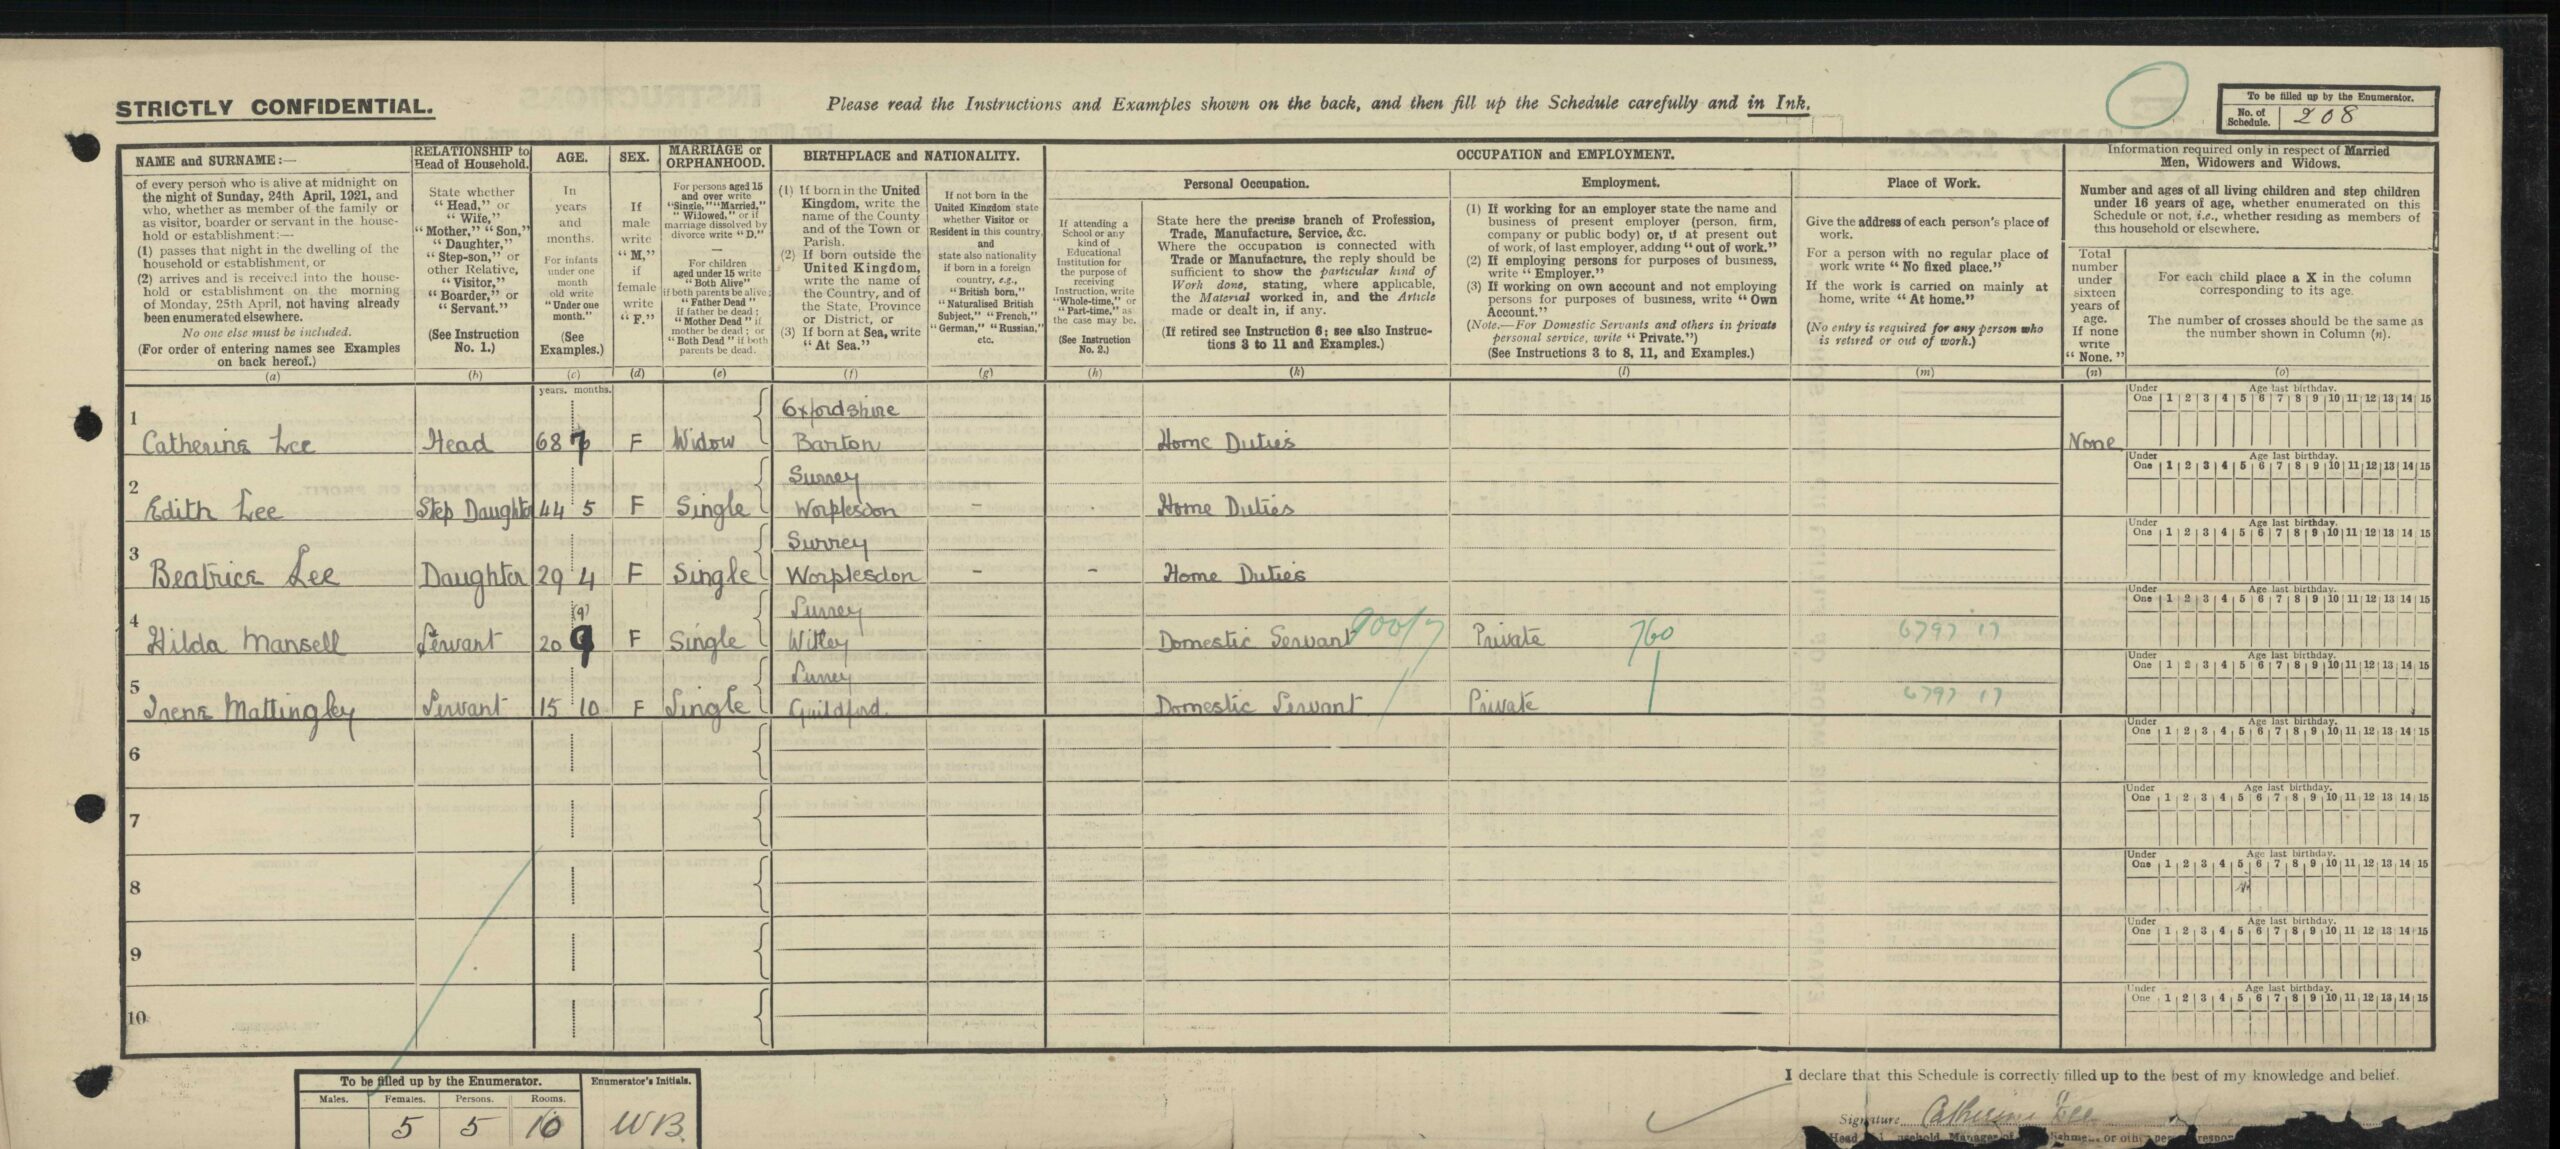 STRICTLY CONFIDENTIAL.
Please read the Instructions and Examples shown on the back, and then fill up the Schedule carefully and in Ink.
To be filled up by the Enumerator.
No. of Schedule. 208
NAME and SURNAME:—
of every person who is alive at midnight on
the night of Sunday, 24th April, 1921, and
who, whether as member of the family or
as visitor, boarder or servant in the house-
hold or establishment:—
(1) passes that night in the dwelling of the
household or establishment, or
(2) arrives and is received into the house-
hold or establishment on the morning
of Monday, 25th April, not having already
been enumerated elsewhere.
No one else must be included.
(For order of entering names see Examples
on back hereof.)
(a)
RELATIONSHIP to
Head of Household.
State whether
"Head," or
"Wife,"
"Mother," "Son,"
"Daughter,"
"Step-son," or
other Relative,
"Visitor,"
"Boarder," or
"Servant."
(See Instruction
No. 1.)
(b)
AGE.
In
years
and
months.
For infants
under one
month
old write
"Under one
month."
(See
Examples.)
(c)
SEX.
If
male
write
"M,"
if
female
write
"F."
(d)
MARRIAGE or
ORPHANHOOD.
For persons aged 15
and over write
"Single," "Married,"
"Widowed," or if
marriage dissolved by
divorce write "D."
—
For children
aged under 15 write
"Both Alive"
if both parents be alive;
"Father Dead"
if father be dead;
"Mother Dead" if
mother be dead; or
"Both Dead" if both
parents be dead.
(e)
BIRTHPLACE and NATIONALITY.
(1) If born in the United
Kingdom, write the
name of the County
and of the Town or
Parish.
(2) If born outside the
United Kingdom,
write the name of
the Country, and of
the State, Province
or District, or
(3) If born at Sea, write
"At Sea."
(f)
If not born in the
United Kingdom state
whether Visitor or
Resident in this country,
and
state also nationality
if born in a foreign
country, e.g.,
"British born,"
"Naturalised British
Subject," "French,"
"German," "Russian,"
etc.
(g)
OCCUPATION and EMPLOYMENT.
If attending a
School or any
kind of
Educational
Institution for
the purpose of
receiving
Instruction, write
"Whole-time," or
"Part-time," as
the case may be.
(See Instruction
No. 2.)
(h)
Personal Occupation.
State here the precise branch of Profession,
Trade, Manufacture, Service, &c.
Where the occupation is connected with
Trade or Manufacture, the reply should be
sufficient to show the particular kind of
Work done, stating, where applicable,
the Material worked in, and the Article
made or dealt in, if any.
(If retired see Instruction 6; see also Instruc-
tions 3 to 11 and Examples.)
(k)
Employment.
(1) If working for an employer state the name and
business of present employer (person, firm,
company or public body) or, if at present out
of work, of last employer, adding "out of work."
(2) If employing persons for purposes of business,
write "Employer."
(3) If working on own account and not employing
persons for purposes of business, write "Own
Account."
(Note.—For Domestic Servants and others in private
personal service, write "Private.")
(See Instructions 3 to 8, 11, and Examples.)
(l)
Place of Work.
Give the address of each person's place of
work.
For a person with no regular place of
work write "No fixed place."
If the work is carried on mainly at
home, write "At home."
(No entry is required for any person who
is retired or out of work.)
(m)
Information required only in respect of Married
Men, Widowers and Widows.
Number and ages of all living children and step children
under 16 years of age, whether enumerated on this
Schedule or not, i.e., whether residing as members of
this household or elsewhere.
Total
number
under
sixteen
years of
age.
If none
write
"None."
(n)
For each child place a X in the column
corresponding to its age.
The number of crosses should be the same as
the number shown in Column (n).
(o)
years. months.
Under One Age last birthday. 1 2 3 4 5 6 7 8 9 10 11 12 13 14 15
1 Catherine Lee Head 68 7 F Widow Oxfordshire Barton Home Duties None
Under One Age last birthday. 1 2 3 4 5 6 7 8 9 10 11 12 13 14 15
2 Edith Lee Step Daughter 44 5 F Single Surrey Worplesdon - Home Duties
Under One Age last birthday. 1 2 3 4 5 6 7 8 9 10 11 12 13 14 15
3 Beatrice Lee Daughter 29 4 F Single Surrey Worplesdon - - Home Duties
Under One Age last birthday. 1 2 3 4 5 6 7 8 9 10 11 12 13 14 15
4 Hilda Mansell Servant 20 9 (9) F Single Surrey Witley Domestic Servant 900/7 Private 760 6797 17
Under One Age last birthday. 1 2 3 4 5 6 7 8 9 10 11 12 13 14 15
5 Irene Mattingley Servant 15 10 F Single Surrey Guildford Domestic Servant Private 6797 17
Under One Age last birthday. 1 2 3 4 5 6 7 8 9 10 11 12 13 14 15
6
Under One Age last birthday. 1 2 3 4 5 6 7 8 9 10 11 12 13 14 15
7
Under One Age last birthday. 1 2 3 4 5 6 7 8 9 10 11 12 13 14 15
8
Under One Age last birthday. 1 2 3 4 5 6 7 8 9 10 11 12 13 14 15
9
Under One Age last birthday. 1 2 3 4 5 6 7 8 9 10 11 12 13 14 15
10
To be filled up by the Enumerator. Enumerator's Initials.
Males. Females. Persons. Rooms.
5 5 10 WB.
I declare that this Schedule is correctly filled up to the best of my knowledge and belief.
Signature Catherine Lee